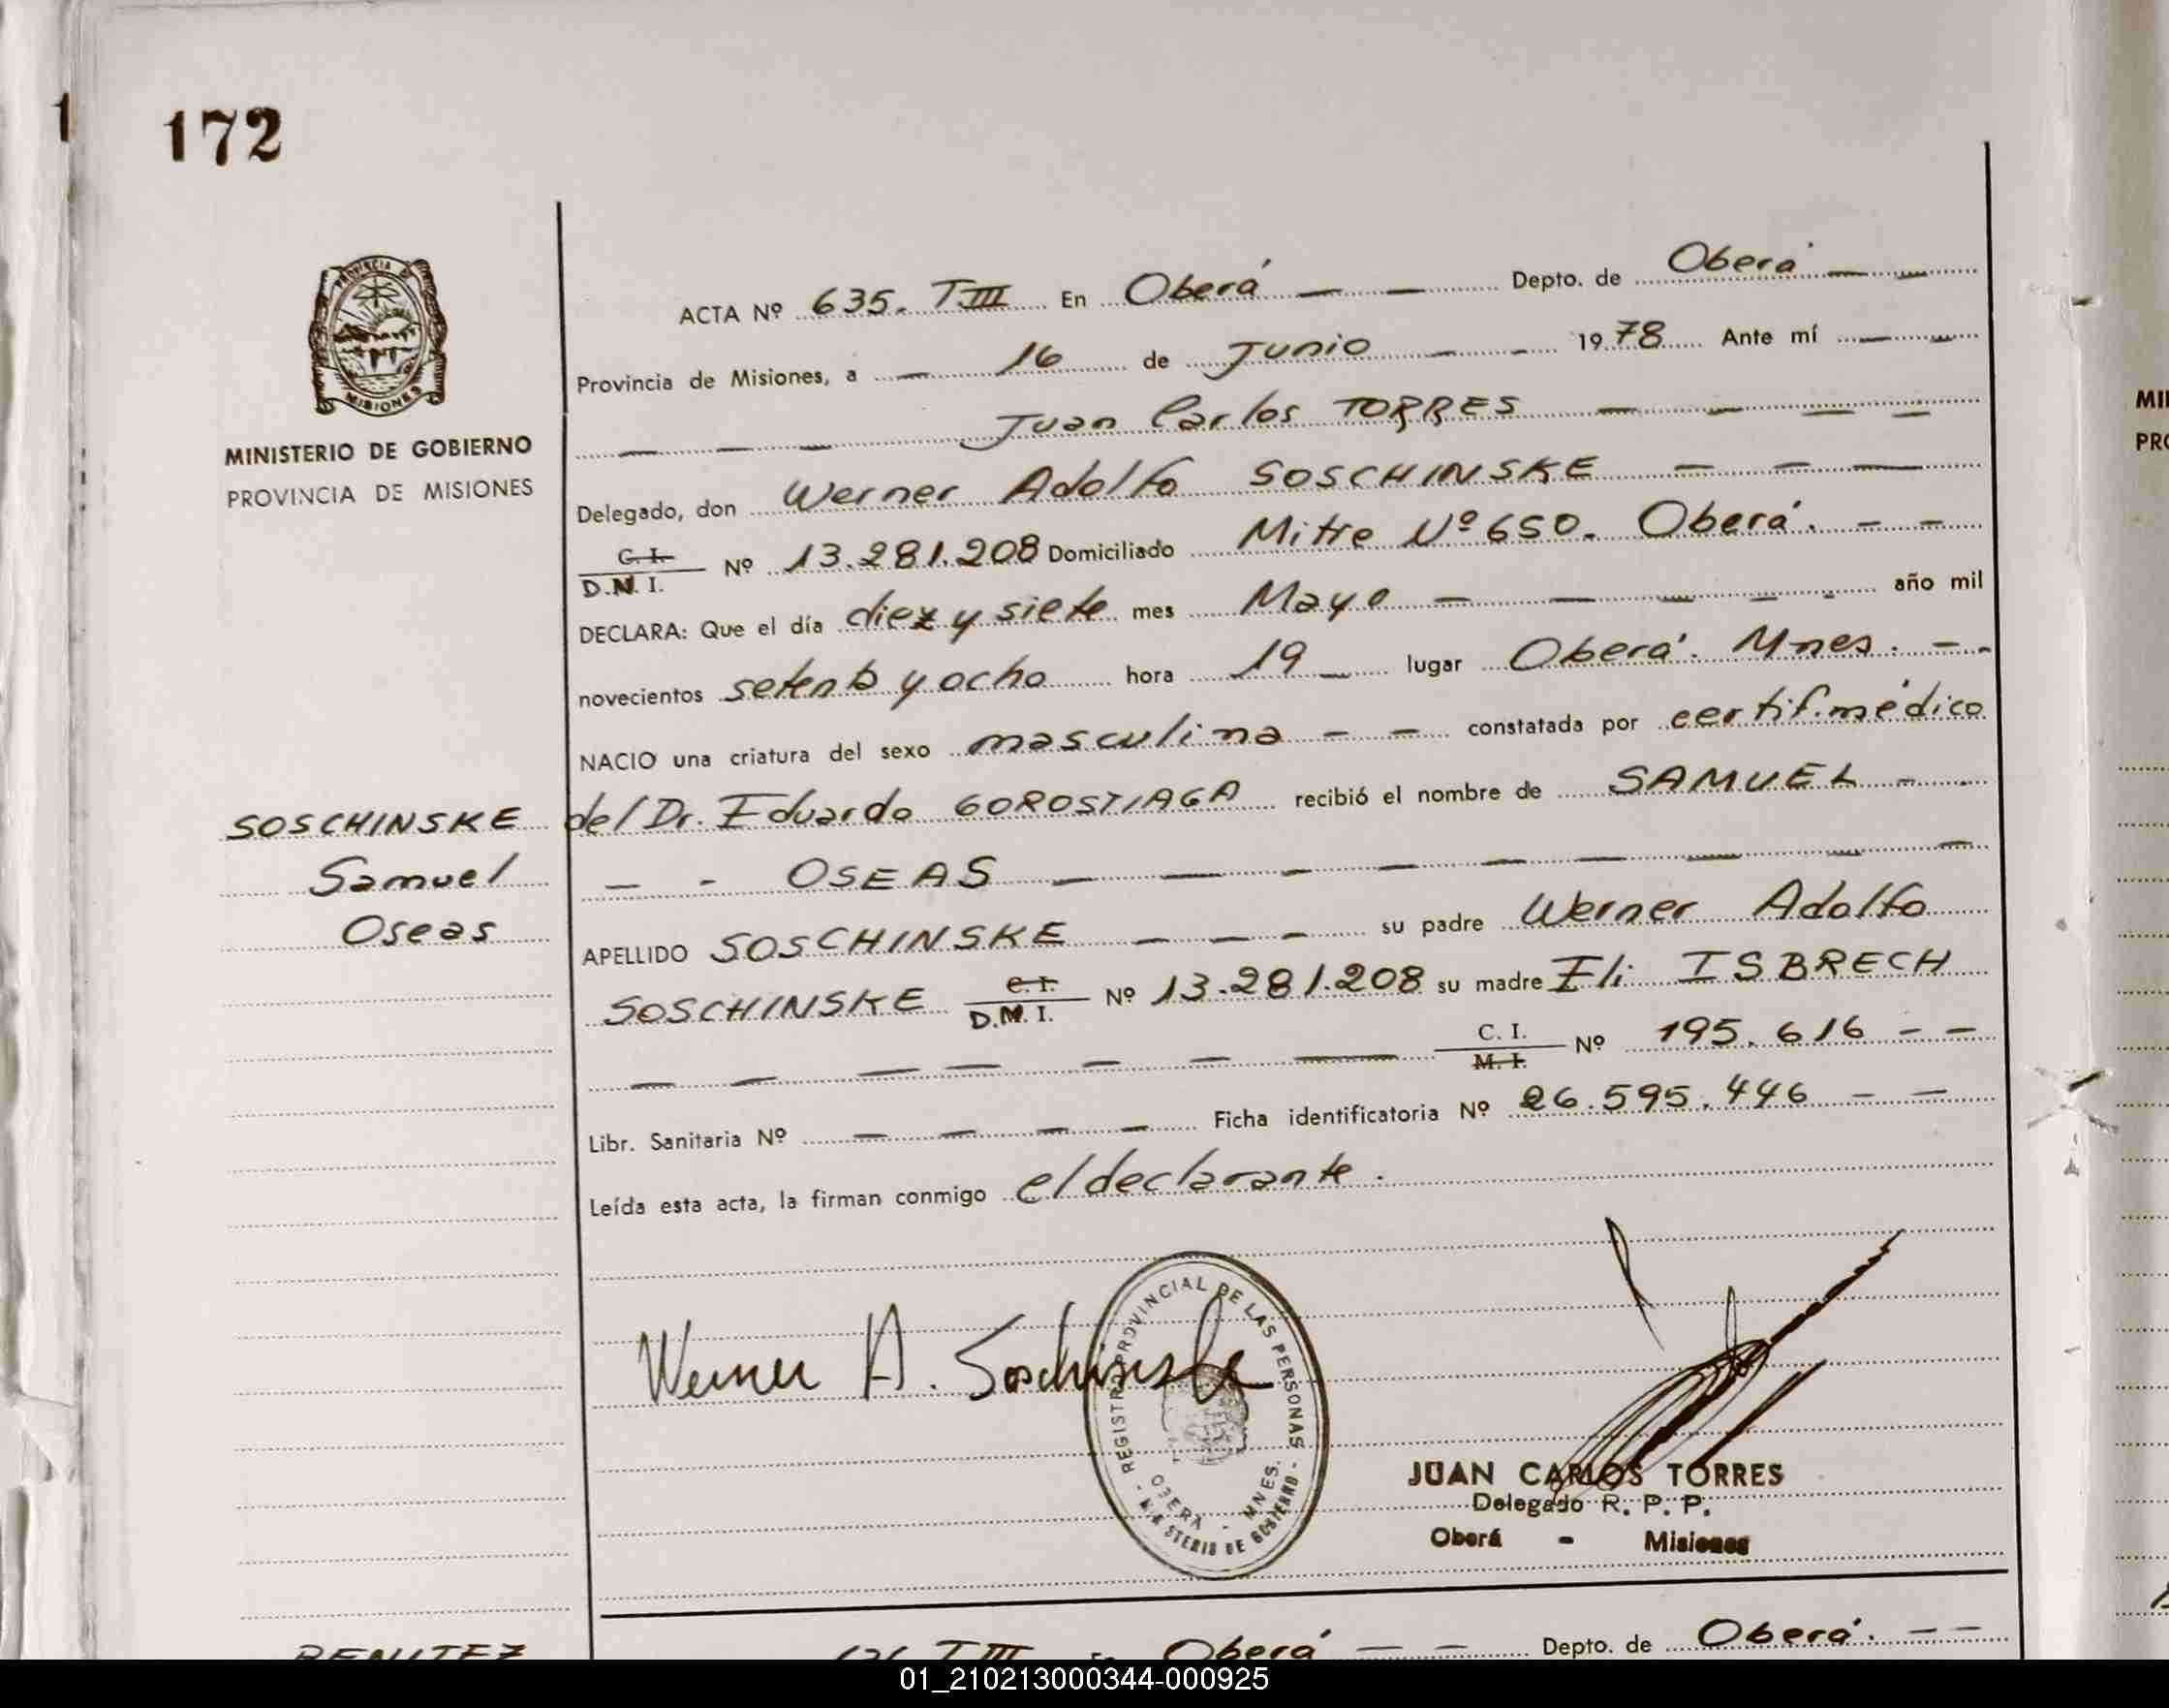 172
PROVINCIA DE
MISIONES
MINISTERIO DE GOBIERNO
PROVINCIA DE MISIONES
SOSCHINSKE
Samuel
Oseas
ACTA Nº 635. T.III En Oberá Depto. de Oberá
Provincia de Misiones, a 16 de Junio 1978 Ante mí
Juan Carlos TORRES
Delegado, don Werner Adolfo SOSCHINSKE
C. I.
D.N.I. Nº 13.281.208 Domiciliado Mitre Nº 650. Oberá.
DECLARA: Que el día diez y siete mes Mayo año mil
novecientos setenta y ocho hora 19 lugar Oberá. Mnes.
NACIO una criatura del sexo masculino constatada por certif. médico
del Dr. Eduardo GOROSTIAGA recibió el nombre de SAMUEL
OSEAS
APELLIDO SOSCHINSKE su padre Werner Adolfo
SOSCHINSKE C. I. D.N.I. Nº 13.281.208 su madre Eli ISBRECH
C. I. M. I. Nº 195.616
Libr. Sanitaria Nº Ficha identificatoria Nº 26.595.446
Leída esta acta, la firman conmigo el declarante.
Werner A. Soschinske
REGISTRO PROVINCIAL DE LAS PERSONAS
OBERA - MNES.
MINISTERIO DE GOBIERNO
JUAN CARLOS TORRES
Delegado R. P. P.
Oberá - Misiones
BENITEZ
T.III En Oberá Depto. de Oberá.
01_210213000344-000925